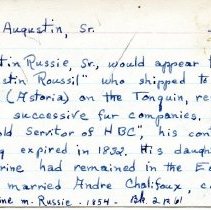 Augustin, Sr.
tin Russie, Sr, would appear t
stin Roussil" who shipped to
(Astoria) on the Tonquin, re
successive fur companies.
old Servitor of HBC", his con
ng expired in 1832. His daught
rine had remained in the Ea
married Andre Chalifoux, c.
ine m. Russie - 1854 - Bk. 2 p. 61